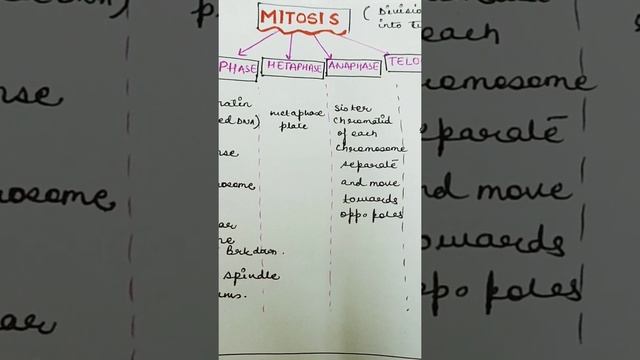 MITOSIS
( Divisio
into tw
PHASE
METAPHASE
ANAPHASE
TELO
atin
ed DNA)
nse
osome
ar
ne
Brkdown.
spindle
ms.
metaphase
plate
sister
chromatid
of each
chromosome
separate
and move
towards
oppo poles
nse
osome
ar
each
omosome
eparate
d move
owards
ppo poles